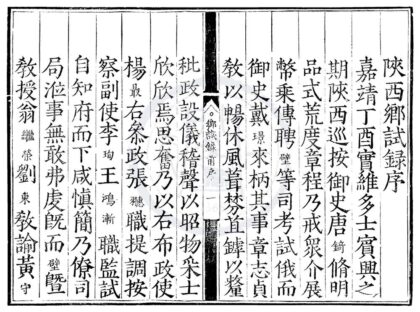 陝西鄉試錄序
嘉靖丁酉實維多士賓興之
期陝西巡按御史唐錡脩明
品式荒度章程乃戒眾介展
幣乘傳聘壁等司考試俄而
御史戴璟來柄其事章志貞
教以暢休風葺棼宜鏬以釐
鄉試錄前序 一
秕政設儀稽聲以昭物采士
欣欣焉思奮乃以右布政使
楊最右叅政張聰職提調按
察副使李珣王鴻漸職監試
自知府而下咸慎簡乃僚司
局涖事無敢弗虔旣而壁曁
教授翁繼榮劉東教諭黃守